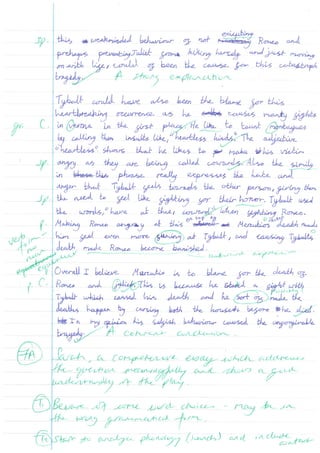 Sp. this weakminded behaviour of not executing Romeo and
perhaps preventing Juliet from killing herself and just moving
on with life, could of been the cause for this catastroph
tragedy. A strong explanation
Tybalt could have also been the blame for this
heartbreaking occurrence as he causes many fights
gr. C. in Verona in the first place. He like to taunt montagues
by calling them insults like, "heartless hinds". The adjective
"heartless" shows that he likes to make his victim
Sp. angry as they are being called cowards. Also the simily
in this phrase really expresses the hate and
anger that Tybalt feels towards the other person, giving them
Sp. the need to feel like fighting for their honor. Tybalt used
the words, "have at thee, coward" when fighting Romeo.
p. Making Romeo angry at this Mercutios death made
verb form him feel even more at Tybalt, and causing Tybalts
death made Romeo become banished.
explain
p. C. Overall I believe Mercutio is to blame for the death of
Romeo and juliet. This is because he a fight with
Tybalt which caused his death and he sort of made the
deaths happen by cursing both the houses before he died.
In my opinion his selfish behaviour caused the unforgivable
tragedy. A conclusion.
7A Sarah, a comprehensive essay which addresses
the question meaningfully and shows a good
understanding of the play.
T1 Beware of some word choices - may be in
the wrong grammatical form.
T2 Start to analyse phonology (sounds) and include
context